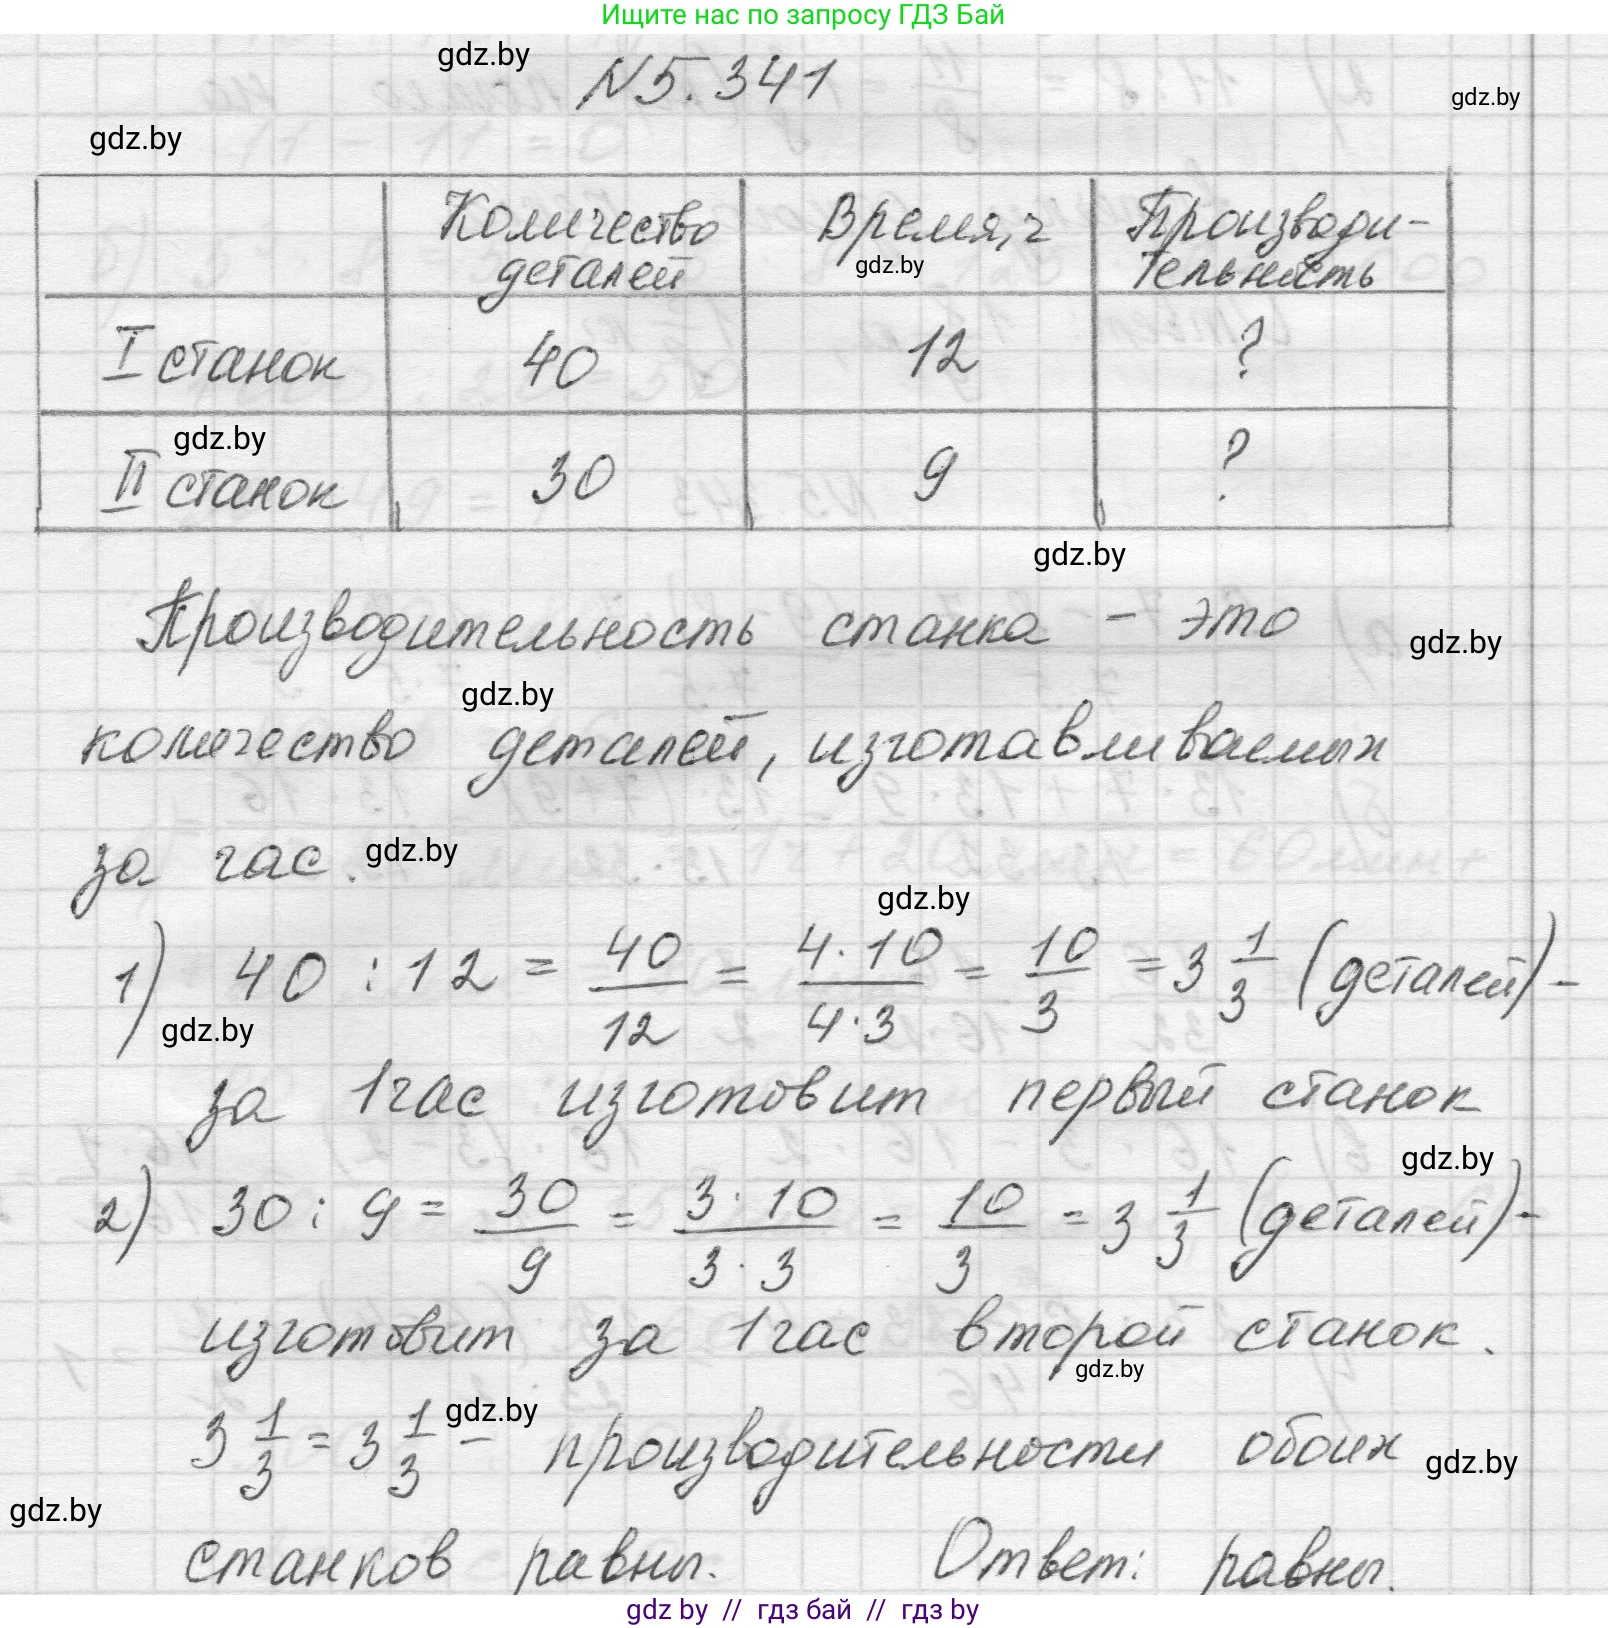 Ищите нас по запросу ГДЗ Бай
gdz.by
N5.341
gdz.by
gdz.by
Количество деталей
Время, ч
gdz.by
Производи-
тельность
I станок 40 12 ?
gdz.by
II станок 30 9 ?
gdz.by
Производительность станка - это
gdz.by
gdz.by
количество деталей, изготавливаемых
за час.
gdz.by
gdz.by
1) 40 : 12 = 40/12 = 4·10/4·3 = 10/3 = 3 1/3 (деталей) -
gdz.by
за 1 час изготовит первый станок
gdz.by
2) 30 : 9 = 30/9 = 3·10/3·3 = 10/3 = 3 1/3 (деталей) -
изготовит за 1 час второй станок.
gdz.by
gdz.by
3 1/3 = 3 1/3 - производительности обоих
gdz.by
gdz.by
станков равны. Ответ: равны.
gdz by // гдз бай // гдз by